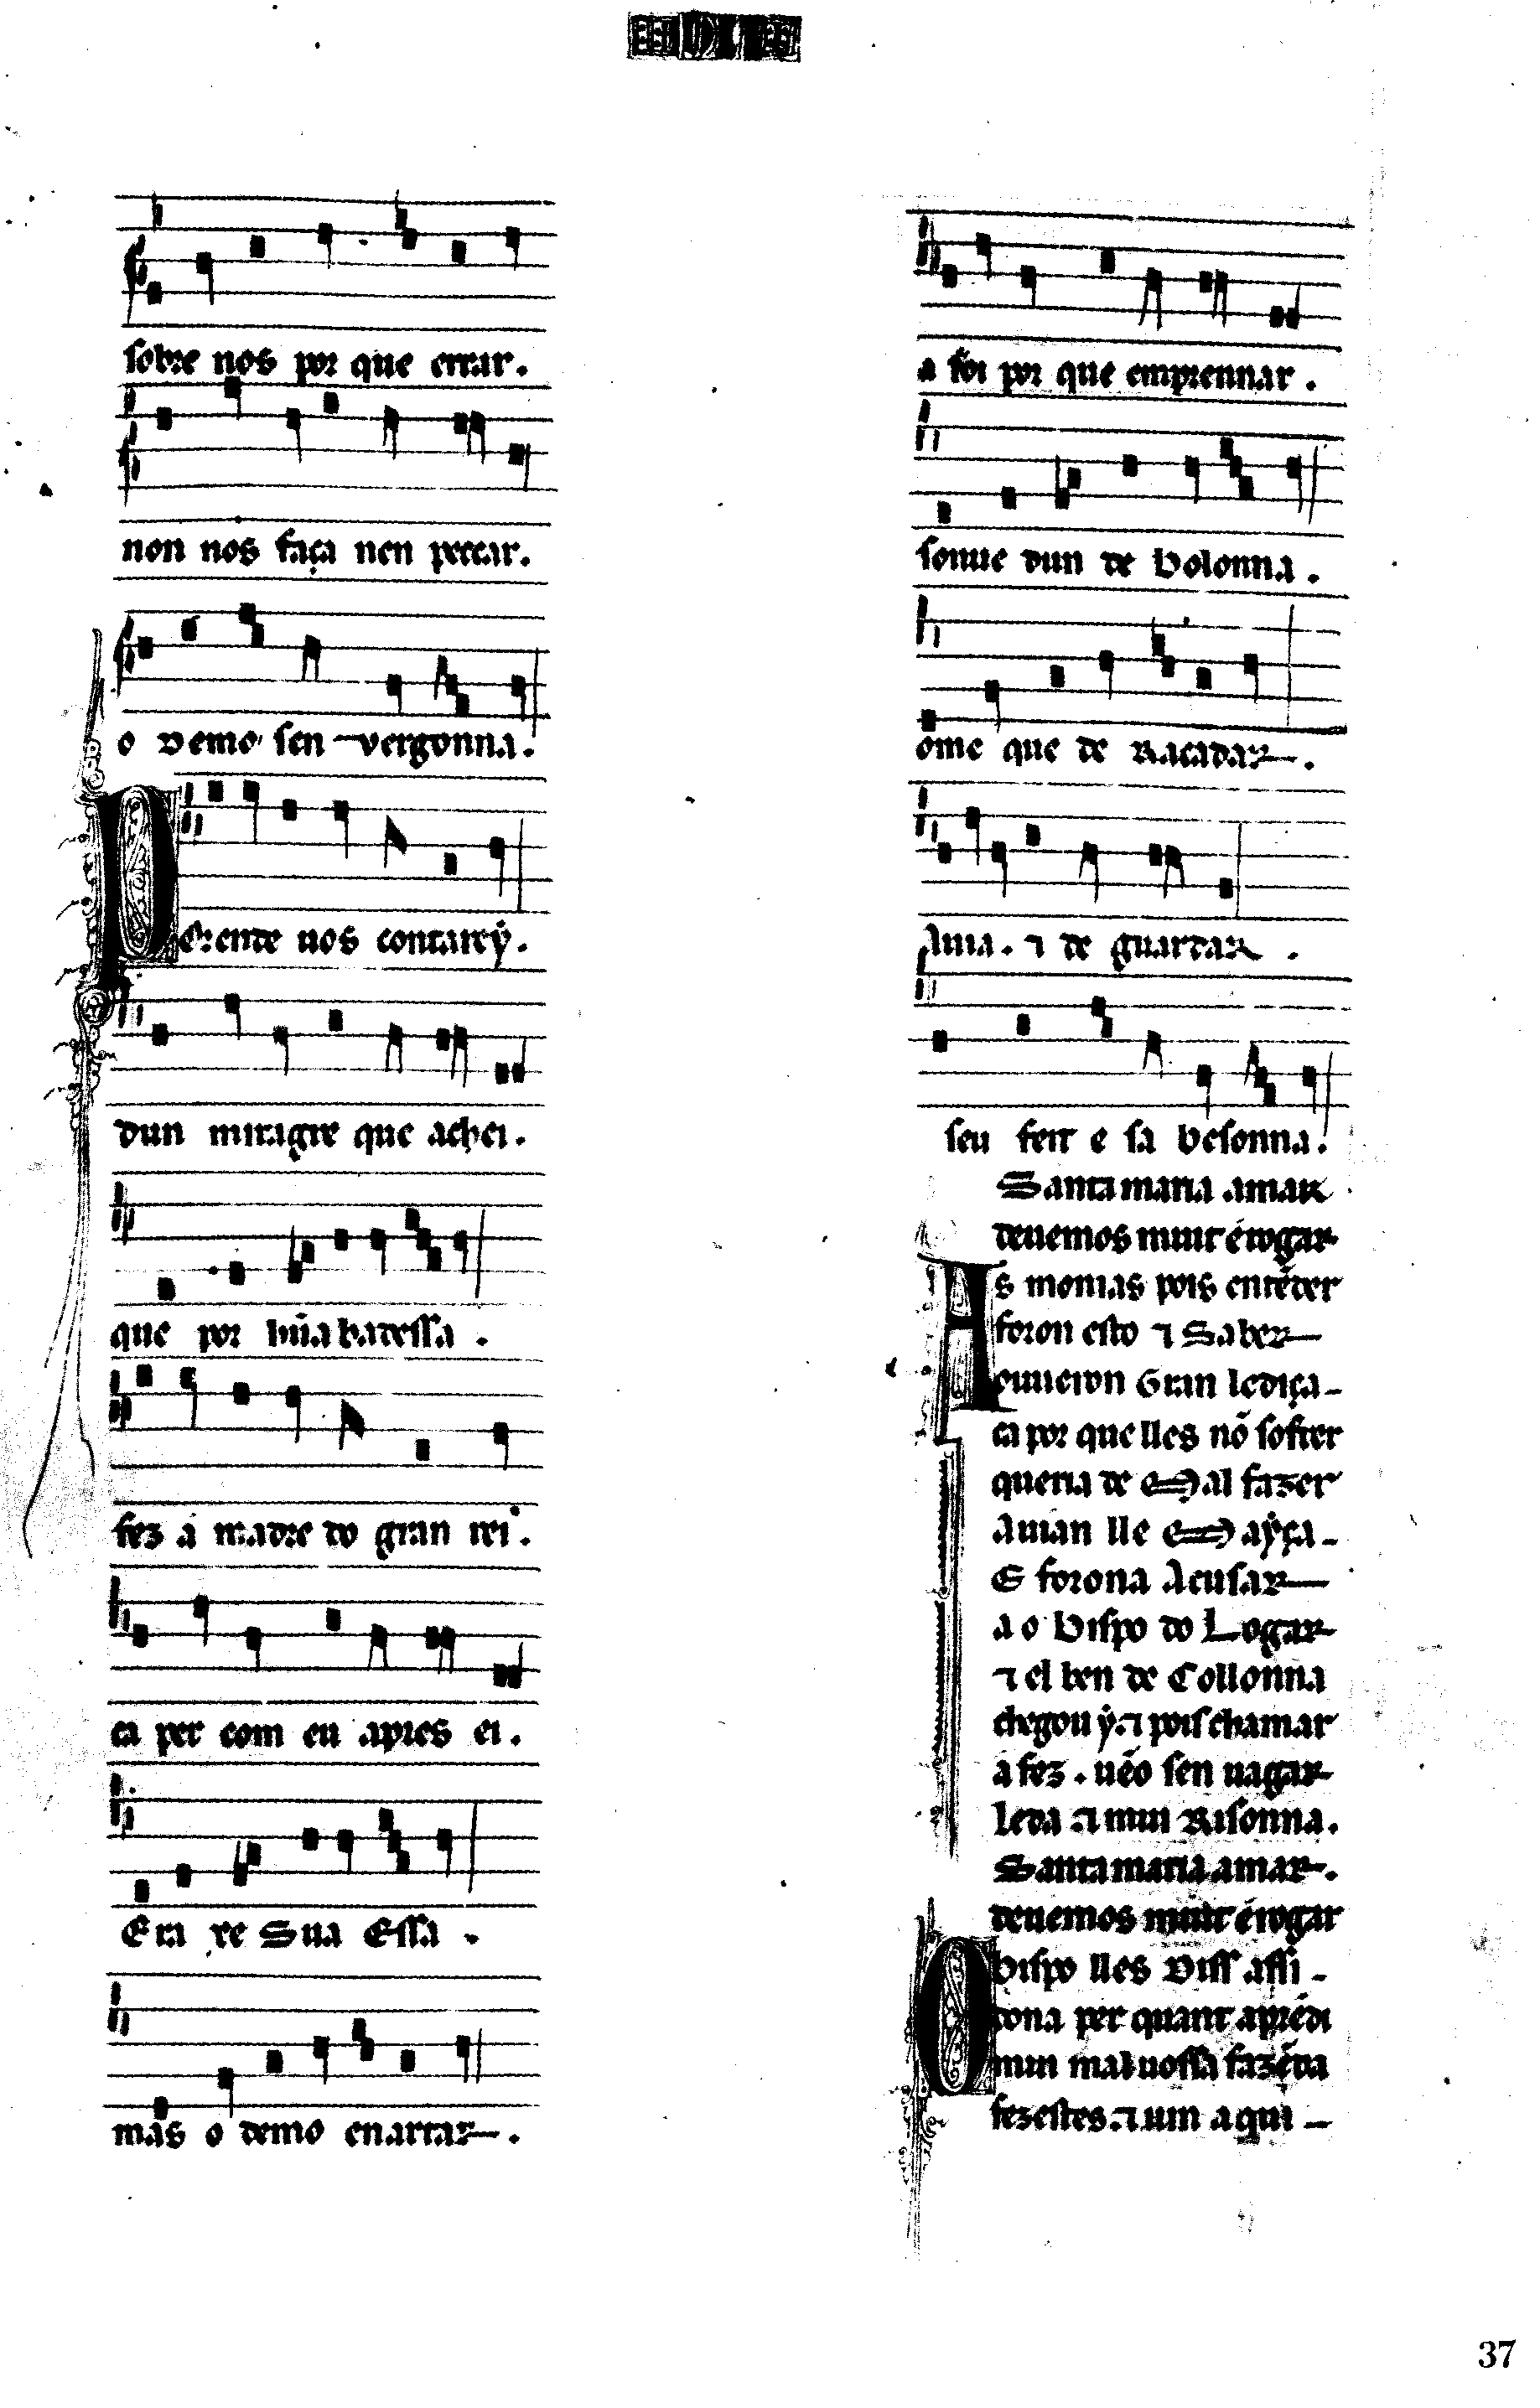 sobre nos por que errar.
non nos faça nen peccar.
o demo sen vergonna.
Porende uos contareẏ.
dun miragre que achei.
que por hũa badessa.
fez a madre do gran rei.
ca per com eu apres ei.
Era xe Sua Essa.
mas o demo enartar.
a foi por que emprennar.
souue dun de bolonna.
ome que de Recadar.
Auia. ⁊ de guardar.
seu feit e sa besonna.
Santa maria amar
deuemos muit é rogar
As monias pois entẽder
foron esto ⁊ Saber
ouueron Gran lediça
ca por que lles nõ sofrer
queria de Mal fazer
Auian lle Maẏça
E foron a Acusar
a o bispo do Logar
⁊ el ben de Collonna
chegou ẏ. ⁊ pois chamar
a fez. uẽo sen uagar
leda ⁊ mui Risonna.
Santa maria amar.
deuemos muit é rogar
O bispo lles diss assi
dona per quant aprẽdi
mui mal uossa fazẽda
fezestes. ⁊ uin aqui
37